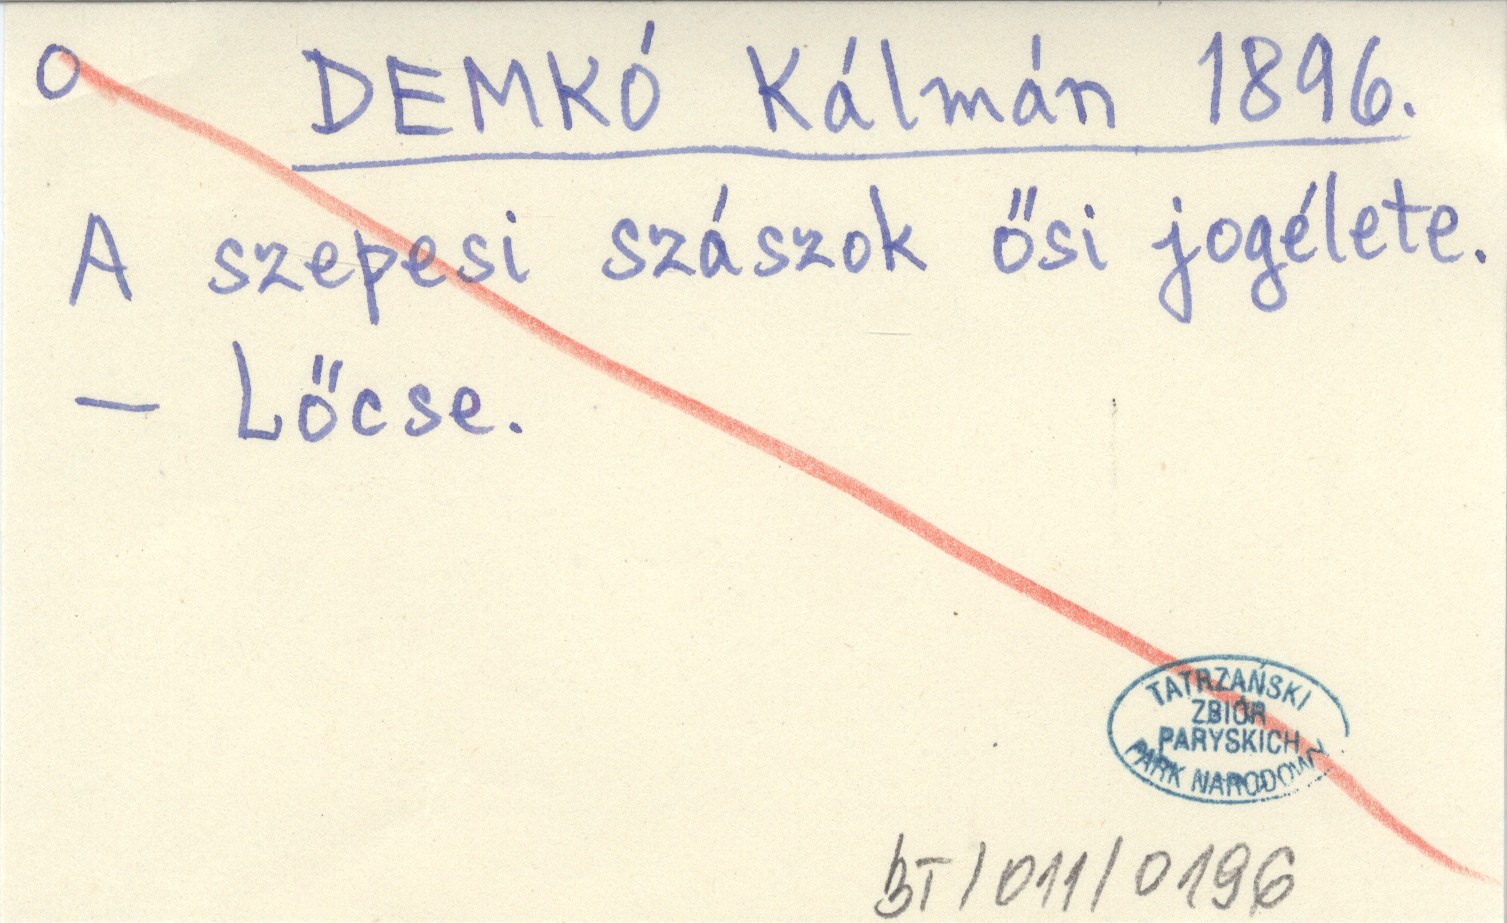 O DEMKÓ Kálmán 1896.
A szepesi szászok ősi jogélete.
— Lőcse.
TATRZAŃSKI
ZBIÓR
PARYSKICH
PARK NARODOWY
BT/011/0196